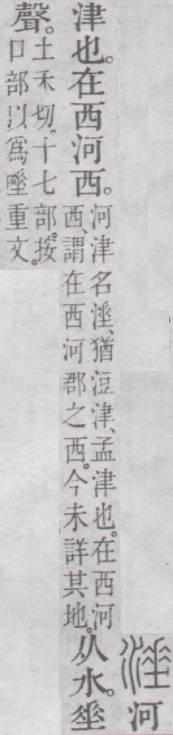 涶河
津也。在西河西。
河津名涶、猶浢津、孟津也。在西河
西、謂在西河郡之西。今未詳其地。
从水。垂
聲。
土禾切。十七部。按
口部以爲唾重文。